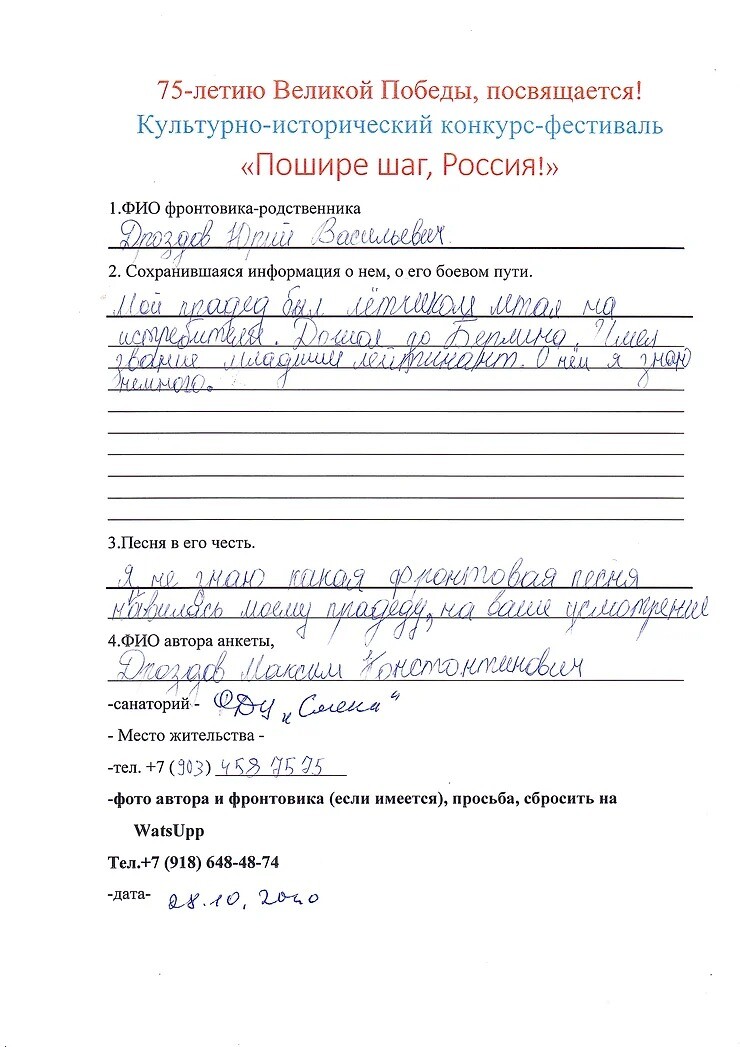 75-летию Великой Победы, посвящается!
Культурно-исторический конкурс-фестиваль
«Пошире шаг, Россия!»
1.ФИО фронтовика-родственника
Дроздов Юрий Васильевич.
2. Сохранившаяся информация о нем, о его боевом пути.
Мой прадед был лётчиком летал на
истребителя. Дошол до Берлина. Имел
звание младший лейтинант. О нём я знаю
немного.
3.Песня в его честь.
Я не знаю какая фронтовая песня
нравилась моему прадеду, на ваше усмотрение
4.ФИО автора анкеты,
Дроздов Максим Константинович
-санаторий - ФДЦ "Смена"
- Место жительства -
-тел. +7 (903) 458 7575
-фото автора и фронтовика (если имеется), просьба, сбросить на
WatsUpp
Тел.+7 (918) 648-48-74
-дата- 28.10, 2020